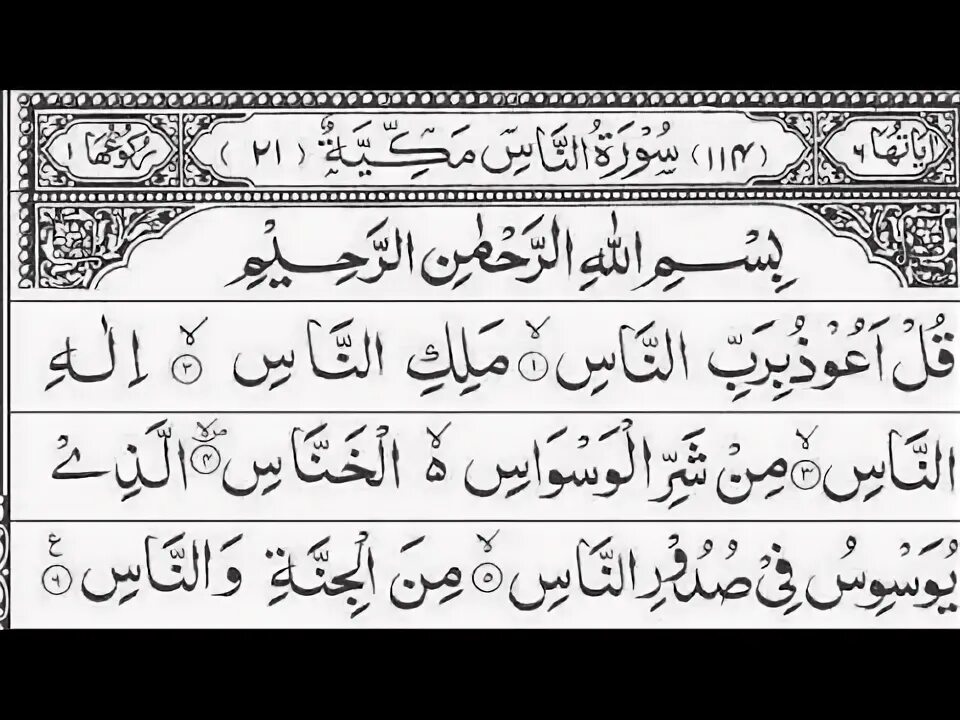 اٰیَاتُهَا ٦ (۱۱۴) سُوْرَةُ النَّاسِ مَكِّيَّةٌ (۲۱) رُكُوْعُهَا ۱
بِسْمِ اللّٰهِ الرَّحْمٰنِ الرَّحِيْمِ
قُلْ اَعُوْذُ بِرَبِّ النَّاسِ ۙ‏﴿۱﴾ مَلِكِ النَّاسِ ۙ‏﴿۲﴾ اِلٰهِ
النَّاسِ ۙ‏﴿۳﴾ مِنْ شَرِّ الْوَسْوَاسِ ۙ۬ الْخَنَّاسِ ۪ۙ‏﴿۴﴾ الَّذِیْ
يُوَسْوِسُ فِیْ صُدُوْرِ النَّاسِ ۙ‏﴿۵﴾ مِنَ الْجِنَّةِ وَالنَّاسِ ﴿۶﴾ ع